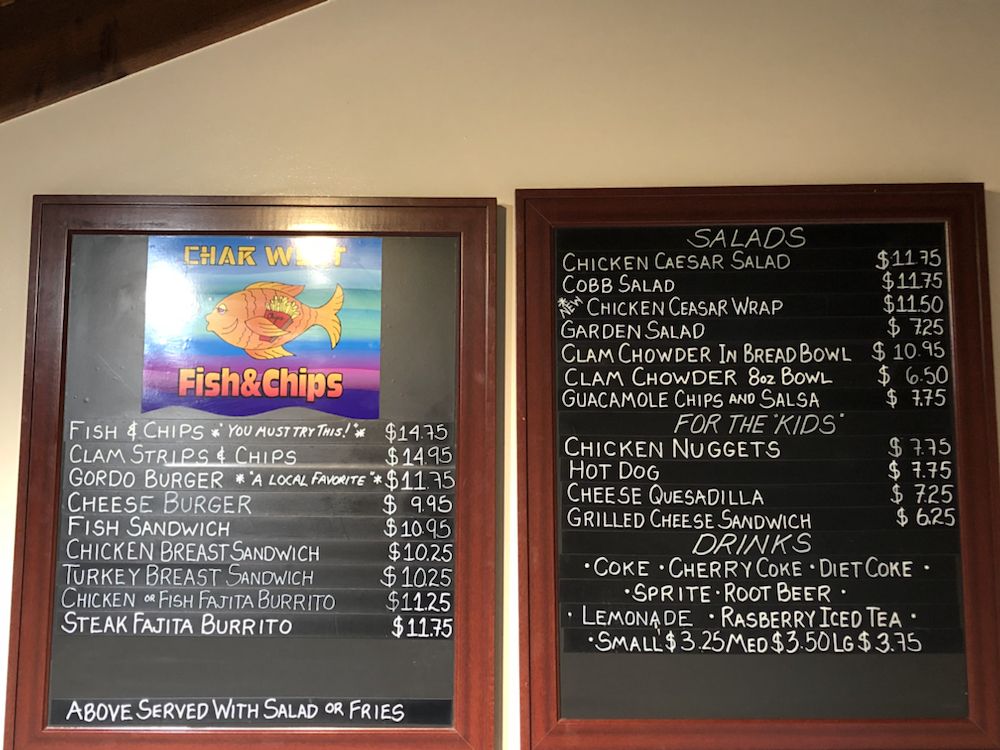 CHAR WEST
Fish&Chips
FISH & CHIPS *"YOU MUST TRY THIS!"* $14.75
CLAM STRIPS & CHIPS $14.95
GORDO BURGER *"A LOCAL FAVORITE"* $11.75
CHEESE BURGER $ 9.95
FISH SANDWICH $10.95
CHICKEN BREAST SANDWICH $10.25
TURKEY BREAST SANDWICH $10.25
CHICKEN OR FISH FAJITA BURRITO $11.25
STEAK FAJITA BURRITO $11.75
ABOVE SERVED WITH SALAD OR FRIES
SALADS
CHICKEN CAESAR SALAD $11.75
COBB SALAD $11.75
*NEW CHICKEN CEASAR WRAP $11.50
GARDEN SALAD $ 7.25
CLAM CHOWDER IN BREAD BOWL $ 10.95
CLAM CHOWDER 8oz BOWL $ 6.50
GUACAMOLE CHIPS AND SALSA $ 7.75
FOR THE "KIDS"
CHICKEN NUGGETS $ 7.75
HOT DOG $ 7.75
CHEESE QUESADILLA $ 7.25
GRILLED CHEESE SANDWICH $ 6.25
DRINKS
• COKE • CHERRY COKE • DIET COKE •
• SPRITE • ROOT BEER •
• LEMONADE • RASBERRY ICED TEA •
• SMALL $3.25/MED $3.50 LG $3.75